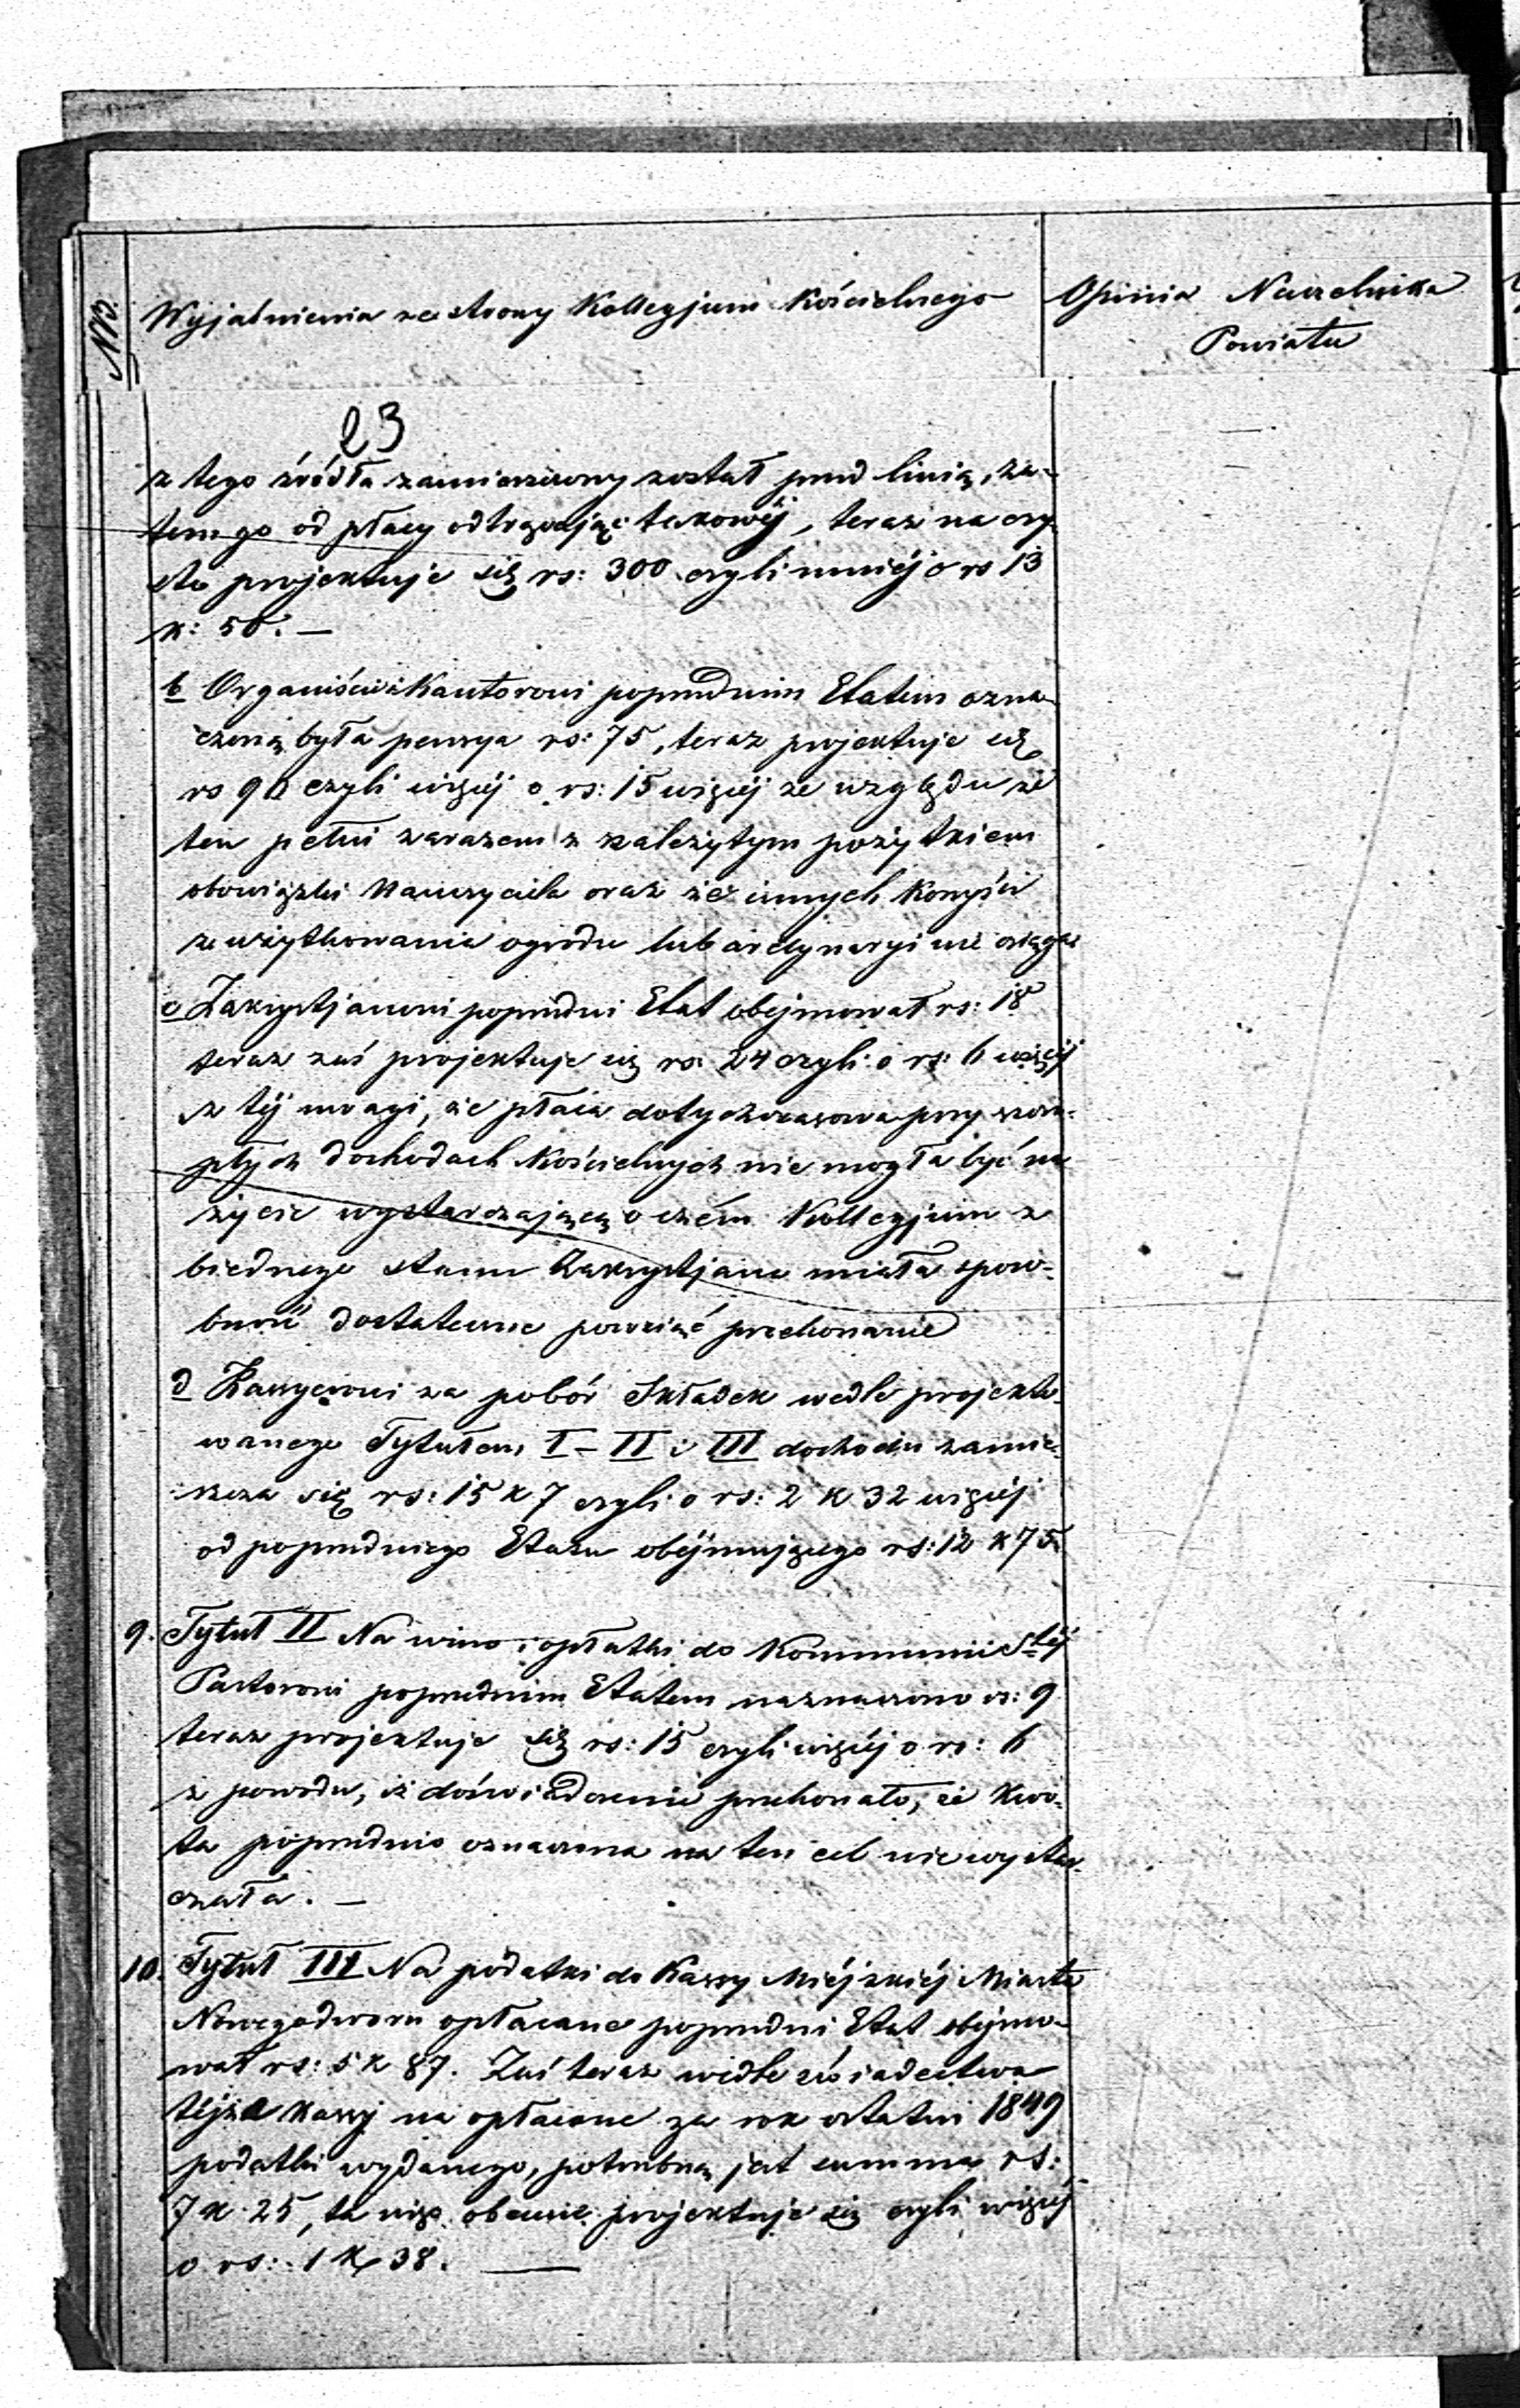 NB.
Wyjaśnienia ze strony Kollegjum Kościelnego
Opinia Naczelnika
Powiatu
23
z tego źródła zamieszczony został pred linią, za-
tem go od płacy odtrącając takowéj, teraz na czy-
sto projektuje się rs: 300 czyli mniéj o rs 13
k: 50. —
b Organiście i Kantorowi poprzednim Etatem ozna-
czoną była pensya rs: 75, teraz projektuje się
rs 90 czyli więcéj o rs: 15 więcéj ze względu że
ten pełni zarazem z należytym pożytkiem
obowiązki Nauczyciela oraz że innych korzyści
z użytkowania ogrodu lub ordynaryi nie osiąga
c Zakrystjanowi poprzedni Etat obejmował rs: 18
teraz zaś projektuje się rs: 24 czyli o rs: 6 więcéj
z téj uwagi, że płaca dotychczasowa przy szczu-
płych dochodach Kościelnych nie mogła być na
życie wystarczającą o czém Kollegjum z
biednego stanu Zakrystjana miało sposo-
bność dostateczne powziąć przekonanie
d Kassyerowi za pobór Składek wedle projekto-
wanego Tytułem I – II i III dochodu zamie-
szcza się rs: 15 k 7 czyli o rs: 2 k 32 więcéj
od poprzedniego Etatu obéjmującego rs: 12 k 75.
9. Tytuł II Na wino i opłatki do Kommunii Stéj
Pastorowi poprzednim Etatem naznaczono rs: 9
teraz projektuje się rs: 15 czyli więcéj o rs: 6
z powodu, iż doświadczenie przekonało, że kwo-
ta poprzednio oznaczona na ten cel nie wystar-
czała. —
10. Tytuł III Na podatki do Kassy Miéjskiéj Miasta
Nowegodworu opłacane poprzedni Etat obejmo-
wał rs: 5 k 87. Zaś teraz wedle świadectwa
téjże Kassy na opłacone za rok ostatni 1849
podatki wydanego, potrzebną jest summa rs:
7 k 25, ta więc obecnie projektuje się czyli więcéj
o rs: 1 k 38. —